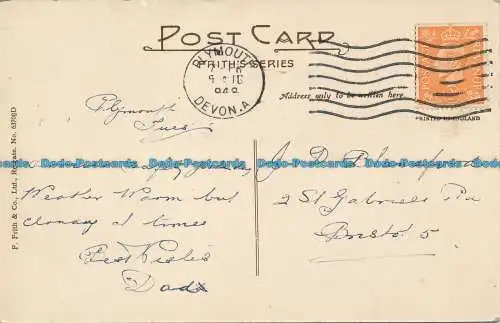 POST CARD
FRITH'S SERIES
PLYMOUTH
DEVON. A
Address only to be written here.
PRINTED IN ENGLAND
F. Frith & Co., Ltd., Reigate. No.
Plymouth
Tues
Dodo-Postcards Dodo-Postcards Dodo-Postcards Dodo-Postcards Dodo-Postcards
J. D.
Weather Warm but
2 St Gabriels Rd
at times
Bristol 5
Best Wishes
Dad x